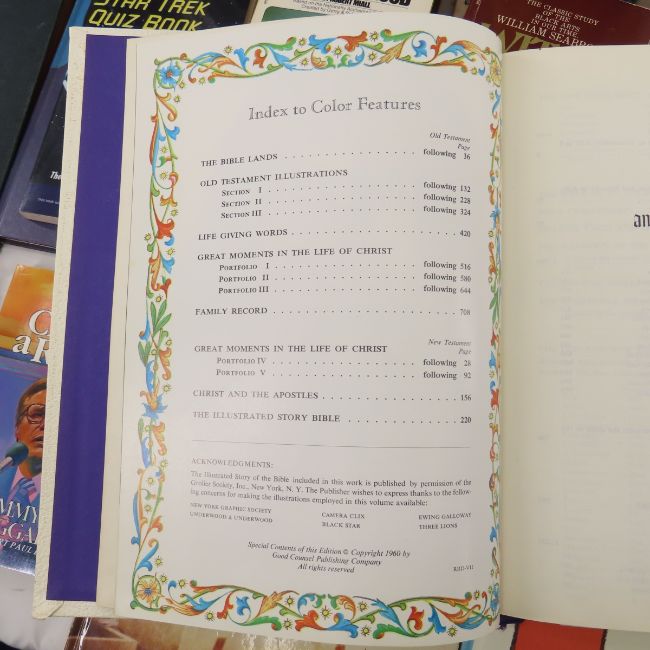 STAR TREK
QUIZ BOOK
THE CLASSIC STUDY
OF THE
BLACK ARTS
IN OUR TIME
WILLIAM SEABR
Index to Color Features
Old Testament
Page
THE BIBLE LANDS . . . . . . . . . . . . . . . following 36
OLD TESTAMENT ILLUSTRATIONS
SECTION I . . . . . . . . . . . . . . . following 132
SECTION II . . . . . . . . . . . . . . . following 228
SECTION III . . . . . . . . . . . . . . . following 324
LIFE GIVING WORDS . . . . . . . . . . . . . . . 420
GREAT MOMENTS IN THE LIFE OF CHRIST
PORTFOLIO I . . . . . . . . . . . . . . . following 516
PORTFOLIO II . . . . . . . . . . . . . . . following 580
PORTFOLIO III . . . . . . . . . . . . . . . following 644
FAMILY RECORD . . . . . . . . . . . . . . . 708
New Testament
Page
GREAT MOMENTS IN THE LIFE OF CHRIST
PORTFOLIO IV . . . . . . . . . . . . . . . following 28
PORTFOLIO V . . . . . . . . . . . . . . . following 92
CHRIST AND THE APOSTLES . . . . . . . . . . . . . . . 156
THE ILLUSTRATED STORY BIBLE . . . . . . . . . . . . . . . 220
ACKNOWLEDGMENTS:
The Illustrated Story of the Bible included in this work is published by permission of the
Grolier Society, Inc., New York, N. Y. The Publisher wishes to express thanks to the follow-
ing concerns for making the illustrations employed in this volume available:
NEW YORK GRAPHIC SOCIETY CAMERA CLIX EWING GALLOWAY
UNDERWOOD & UNDERWOOD BLACK STAR THREE LIONS
Special Contents of this Edition © Copyright 1960 by
Good Counsel Publishing Company
All rights reserved
an